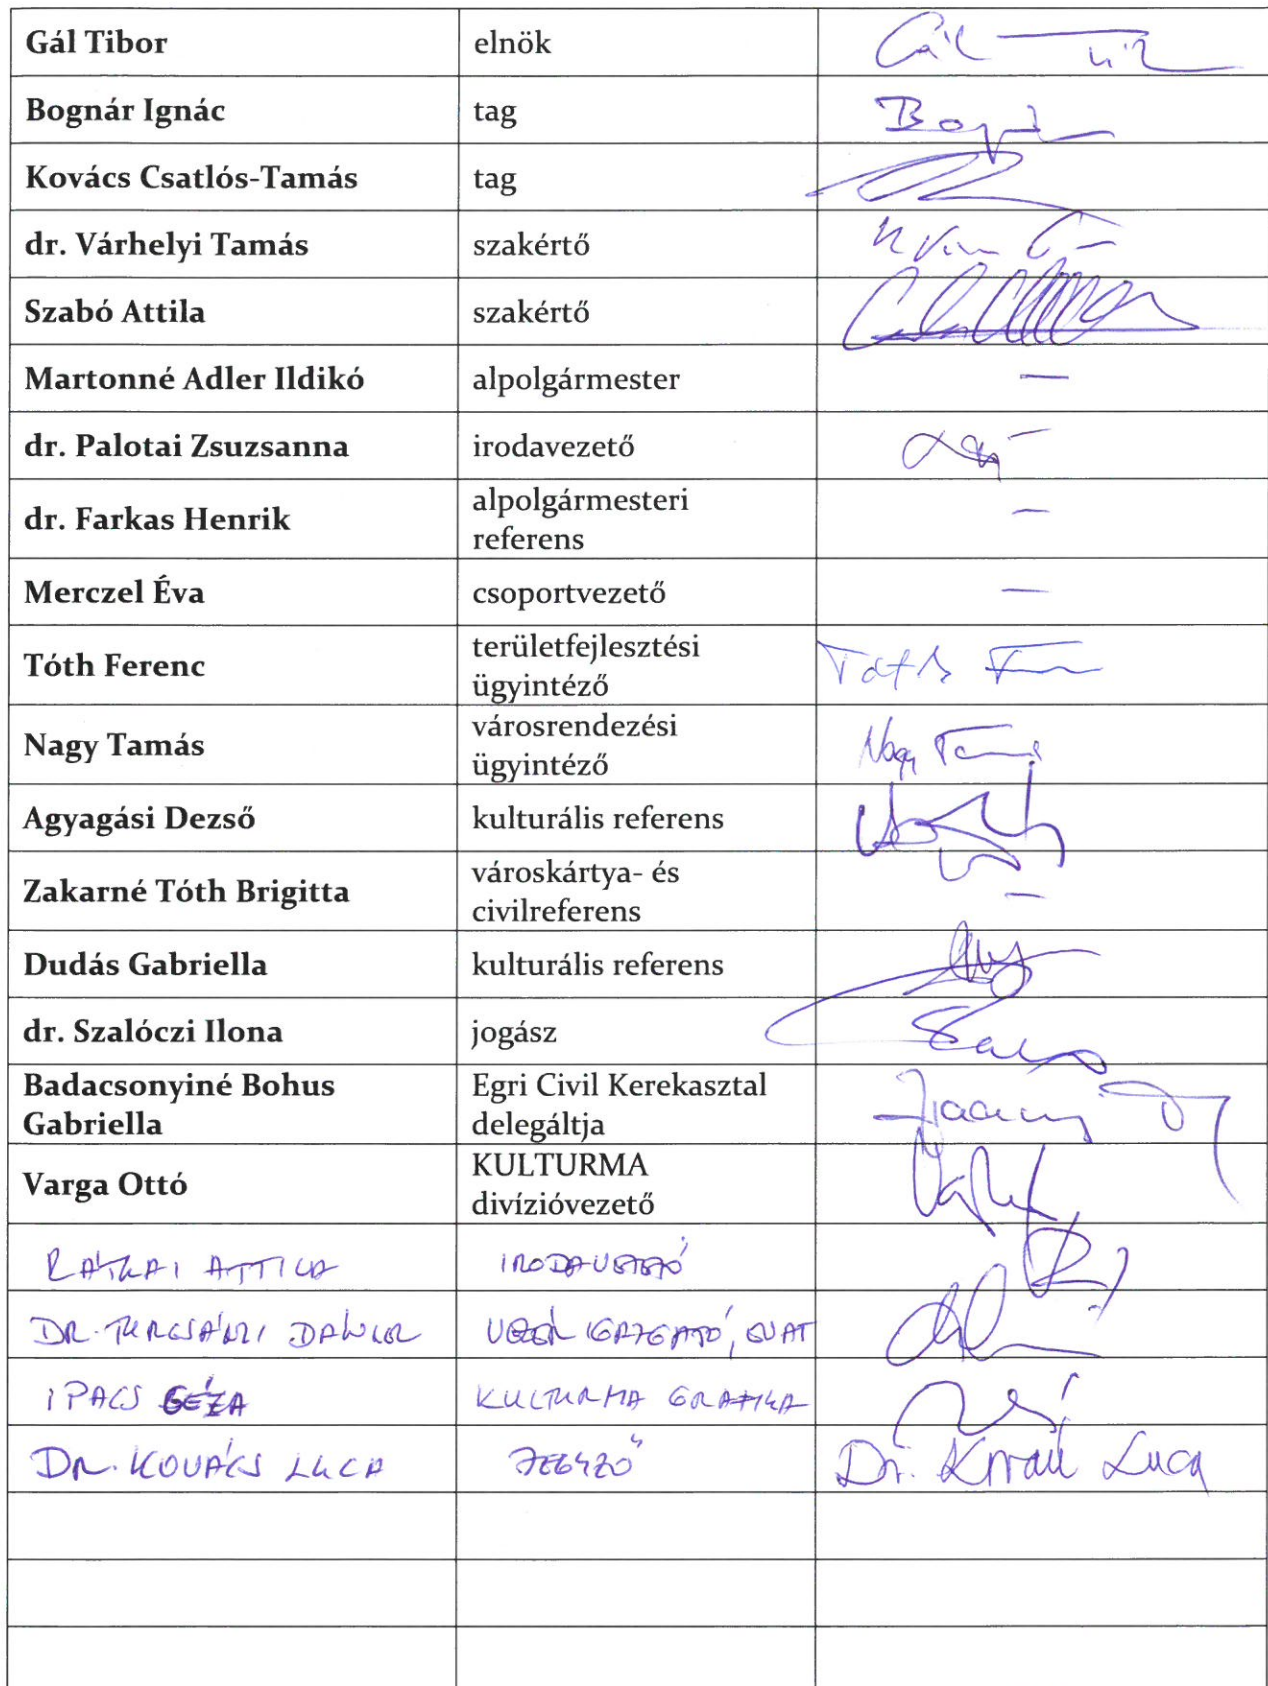 Gál Tibor elnök
Bognár Ignác tag
Kovács Csatlós-Tamás tag
dr. Várhelyi Tamás szakértő
Szabó Attila szakértő
Martonné Adler Ildikó alpolgármester —
dr. Palotai Zsuzsanna irodavezető
dr. Farkas Henrik alpolgármesteri
referens —
Merczel Éva csoportvezető —
Tóth Ferenc területfejlesztési
ügyintéző Tóth
Nagy Tamás városrendezési
ügyintéző Nagy Tamás
Agyagási Dezső kulturális referens
Zakarné Tóth Brigitta városkártya- és
civilreferens —
Dudás Gabriella kulturális referens
dr. Szalóczi Ilona jogász
Badacsonyiné Bohus
Gabriella
Egri Civil Kerekasztal
delegáltja
Varga Ottó KULTURMA
divízióvezető
RÁTKAI ATTILA IRODAVEZETŐ
IPACS GÉZA KULTURMA GRAFIKA
DR. KOVÁCS LUCA JEGYZŐ Dr. Kovács Luca